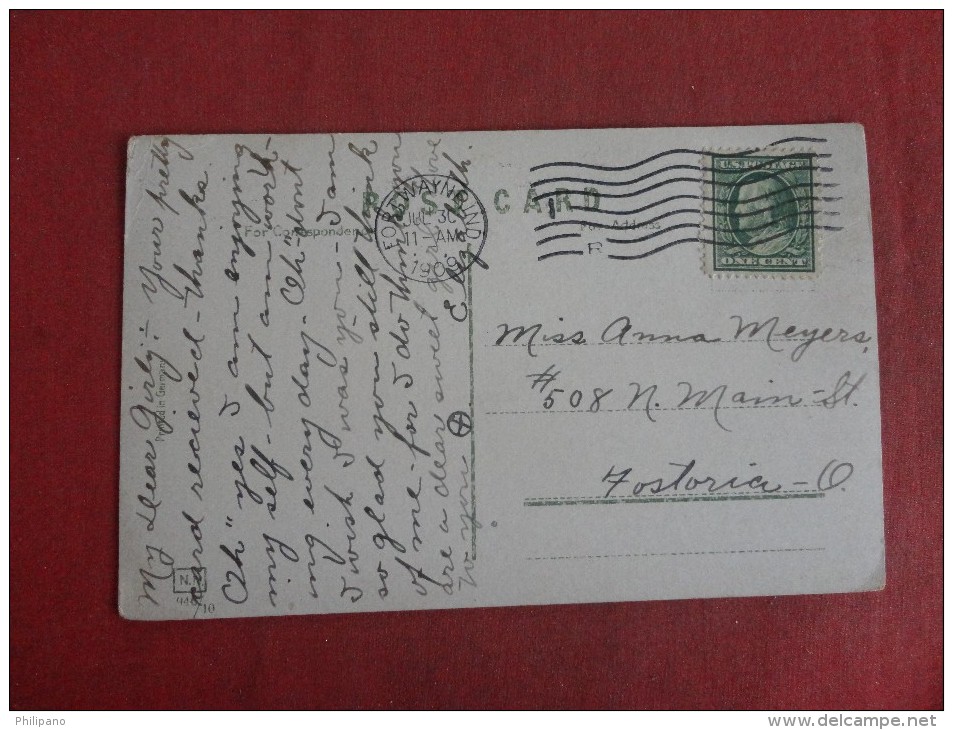 POST CARD
For Correspondence
For Address
FORT WAYNE, IND.
JUL 30
11 - AM
1909
U.S. POSTAGE
ONE CENT
My Dear Girly:- Your pretty
card recieved - thanks
"Oh" yes I am enjoying
my self - but am work-
ing every day - "Oh" dont
I wish I was you - I am
so glad you still think
of me - for I do think you
are a dear sweet girl love
to you
Elizabeth.
Miss Anna Meyers,
#508 N. Main-St.
Fostoria - O.
Printed in Germany
N.
10
Philipano
www.delcampe.net